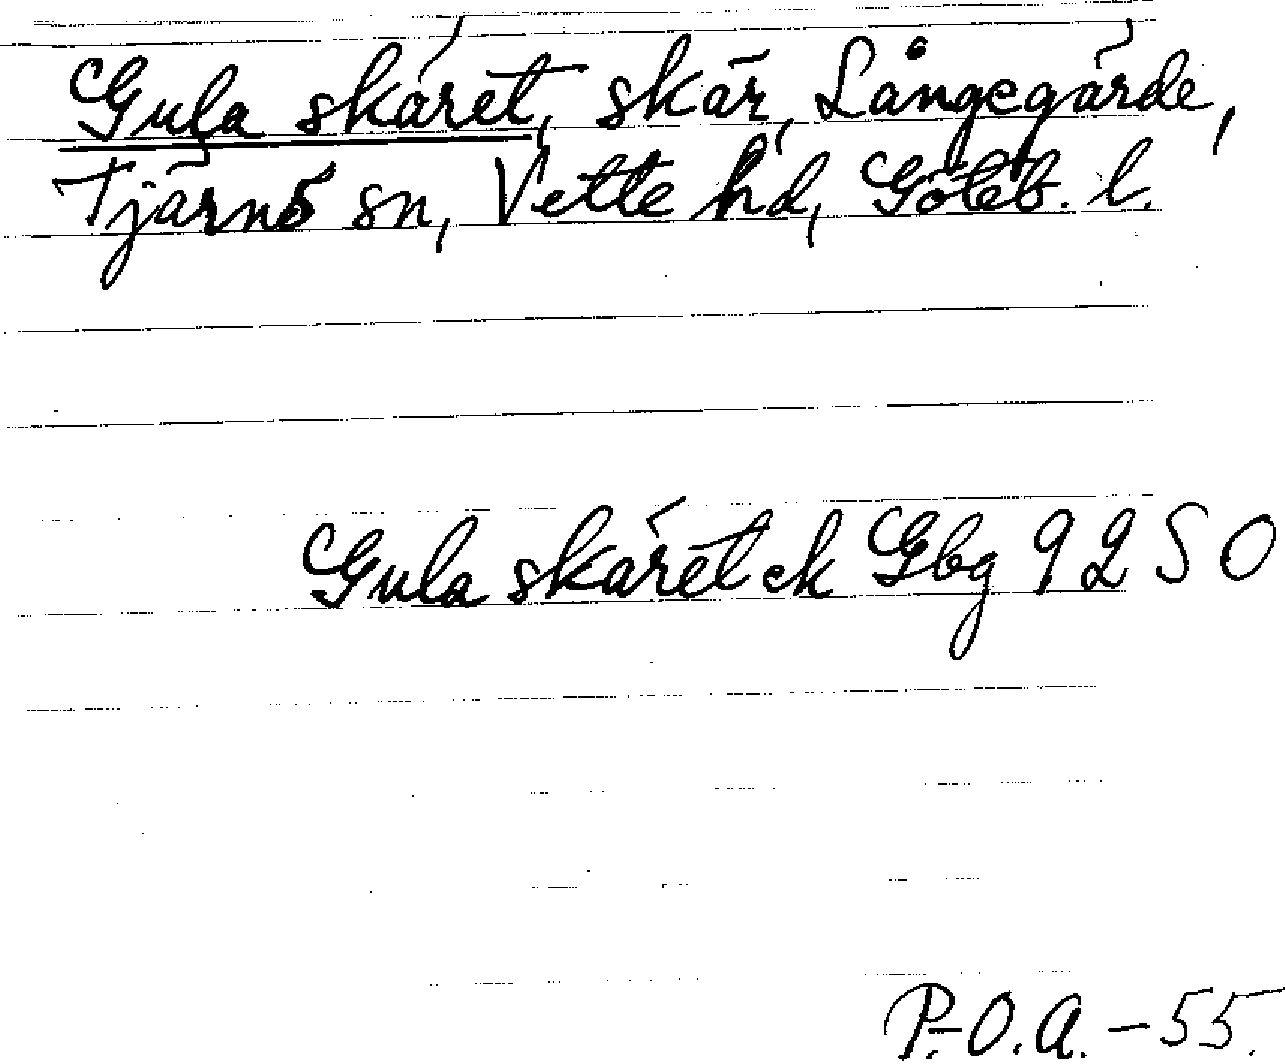 Gula skäret, skär, Långegärde,
Tjärnö sn, Vette hd, Göteb. l.
Gula skäret ek Gbg 92 SO
P.-O.A. - 55.